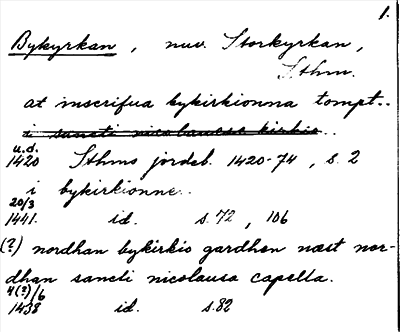 1.
Bykyrkan, nuv. Storkyrkan,
Sthm.
at inscrifua bykirkionna tompt..
i sancti nicolauese kirkio..
u.d.
1420 Sthms jordeb. 1420-74, s. 2
i bykirkionne..
20/3
1441. id. s. 72, 106
(?) nordhan bykirkio gardhen næst nor-
dhan sancti nicolausa capella.
4(?)/6
1438 id. s. 82